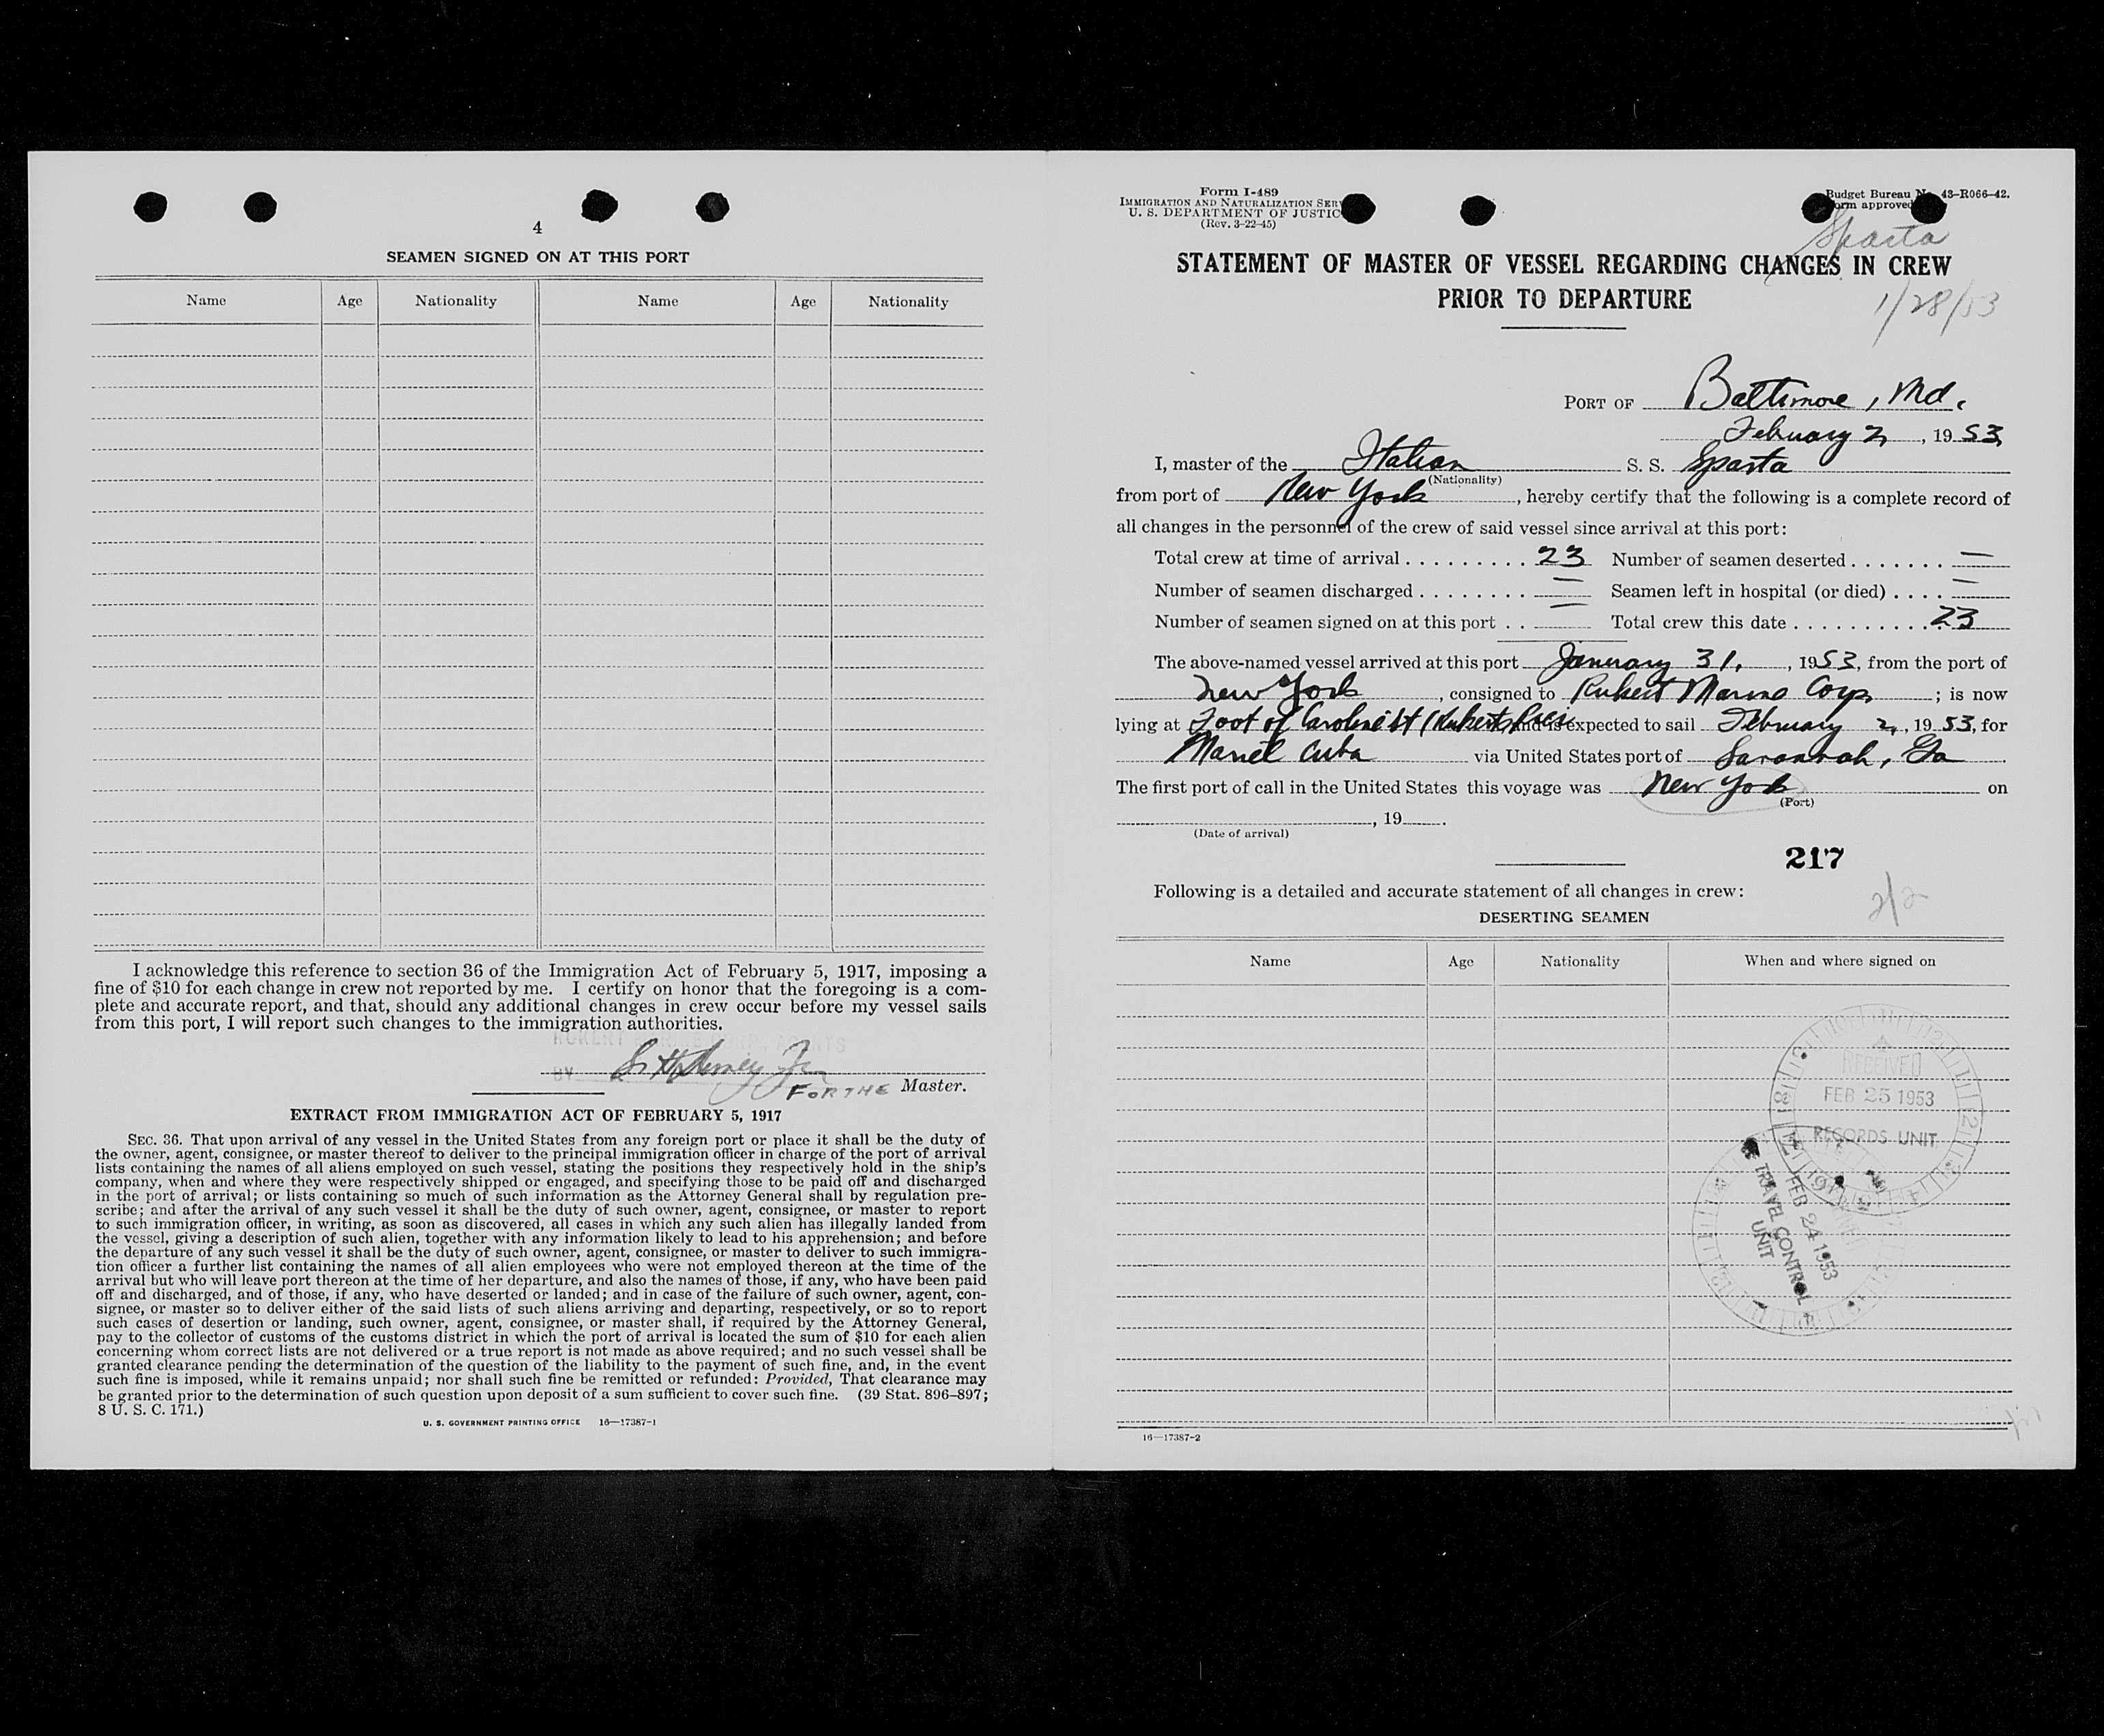 4
SEAMEN SIGNED ON AT THIS PORT
Name Age Nationality Name Age Nationality
I acknowledge this reference to section 36 of the Immigration Act of February 5, 1917, imposing a
fine of $10 for each change in crew not reported by me. I certify on honor that the foregoing is a com-
plete and accurate report, and that, should any additional changes in crew occur before my vessel sails
from this port, I will report such changes to the immigration authorities.
BY
FOR THE Master.
EXTRACT FROM IMMIGRATION ACT OF FEBRUARY 5, 1917
SEC. 36. That upon arrival of any vessel in the United States from any foreign port or place it shall be the duty of
the owner, agent, consignee, or master thereof to deliver to the principal immigration officer in charge of the port of arrival
lists containing the names of all aliens employed on such vessel, stating the positions they respectively hold in the ship's
company, when and where they were respectively shipped or engaged, and specifying those to be paid off and discharged
in the port of arrival; or lists containing so much of such information as the Attorney General shall by regulation pre-
scribe; and after the arrival of any such vessel it shall be the duty of such owner, agent, consignee, or master to report
to such immigration officer, in writing, as soon as discovered, all cases in which any such alien has illegally landed from
the vessel, giving a description of such alien, together with any information likely to lead to his apprehension; and before
the departure of any such vessel it shall be the duty of such owner, agent, consignee, or master to deliver to such immigra-
tion officer a further list containing the names of all alien employees who were not employed thereon at the time of the
arrival but who will leave port thereon at the time of her departure, and also the names of those, if any, who have been paid
off and discharged, and of those, if any, who have deserted or landed; and in case of the failure of such owner, agent, con-
signee, or master so to deliver either of the said lists of such aliens arriving and departing, respectively, or so to report
such cases of desertion or landing, such owner, agent, consignee, or master shall, if required by the Attorney General,
pay to the collector of customs of the customs district in which the port of arrival is located the sum of $10 for each alien
concerning whom correct lists are not delivered or a true report is not made as above required; and no such vessel shall be
granted clearance pending the determination of the question of the liability to the payment of such fine, and, in the event
such fine is imposed, while it remains unpaid; nor shall such fine be remitted or refunded: Provided, That clearance may
be granted prior to the determination of such question upon deposit of a sum sufficient to cover such fine. (39 Stat. 896–897;
8 U. S. C. 171.)
U. S. GOVERNMENT PRINTING OFFICE 16—17387-1
Form I-489
IMMIGRATION AND NATURALIZATION SER
U. S. DEPARTMENT OF JUSTIC
(Rev. 3-22-45)
Budget Bureau N 43-R066-42.
orm approved
Sparta
STATEMENT OF MASTER OF VESSEL REGARDING CHANGES IN CREW
PRIOR TO DEPARTURE
1/28/53
PORT OF Baltimore, Md.
February 2, 1953
I, master of the Italian S. S. Sparta
(Nationality)
from port of New York, hereby certify that the following is a complete record of
all changes in the personnel of the crew of said vessel since arrival at this port:
Total crew at time of arrival 23 Number of seamen deserted —
Number of seamen discharged — Seamen left in hospital (or died) —
Number of seamen signed on at this port — Total crew this date 23
The above-named vessel arrived at this port January 31, 1953, from the port of
New York, consigned to Rukert Marine Corp; is now
lying at Foot of Caroline St (Rukerts and is expected to sail February 2, 1953, for
Mariel Cuba via United States port of Savannah, Ga.
The first port of call in the United States this voyage was New York on
(Port)
, 19 .
(Date of arrival)
217
Following is a detailed and accurate statement of all changes in crew:
2/2
DESERTING SEAMEN
Name Age Nationality When and where signed on
RECEIVED
FEB 25 1953
RECORDS UNIT
FEB 24 1953
TRAVEL CONTROL
UNIT
16—17387-2